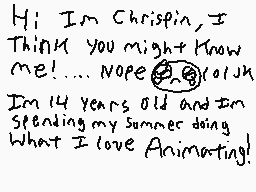 Hi Im Chrispin, I
Think you might know
me!.... Nope lol JK
Im 14 years old and Im
spending my summer doing
what I love Animating!